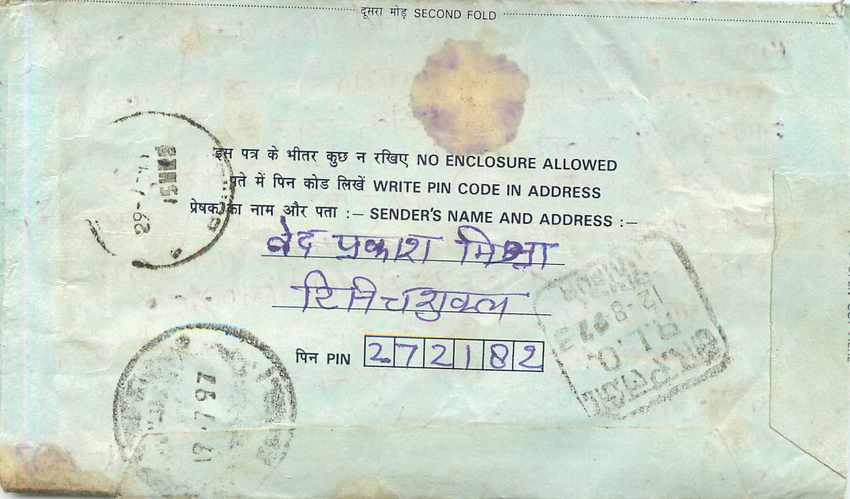 दूसरा मोड़ SECOND FOLD
इस पत्र के भीतर कुछ न रखिए NO ENCLOSURE ALLOWED
पते में पिन कोड लिखें WRITE PIN CODE IN ADDRESS
प्रेषक का नाम और पता :— SENDER'S NAME AND ADDRESS :—
वेद प्रकाश मिश्रा
टिनिचशुक्ल
पिन PIN 272182
R.L.O.
7 97